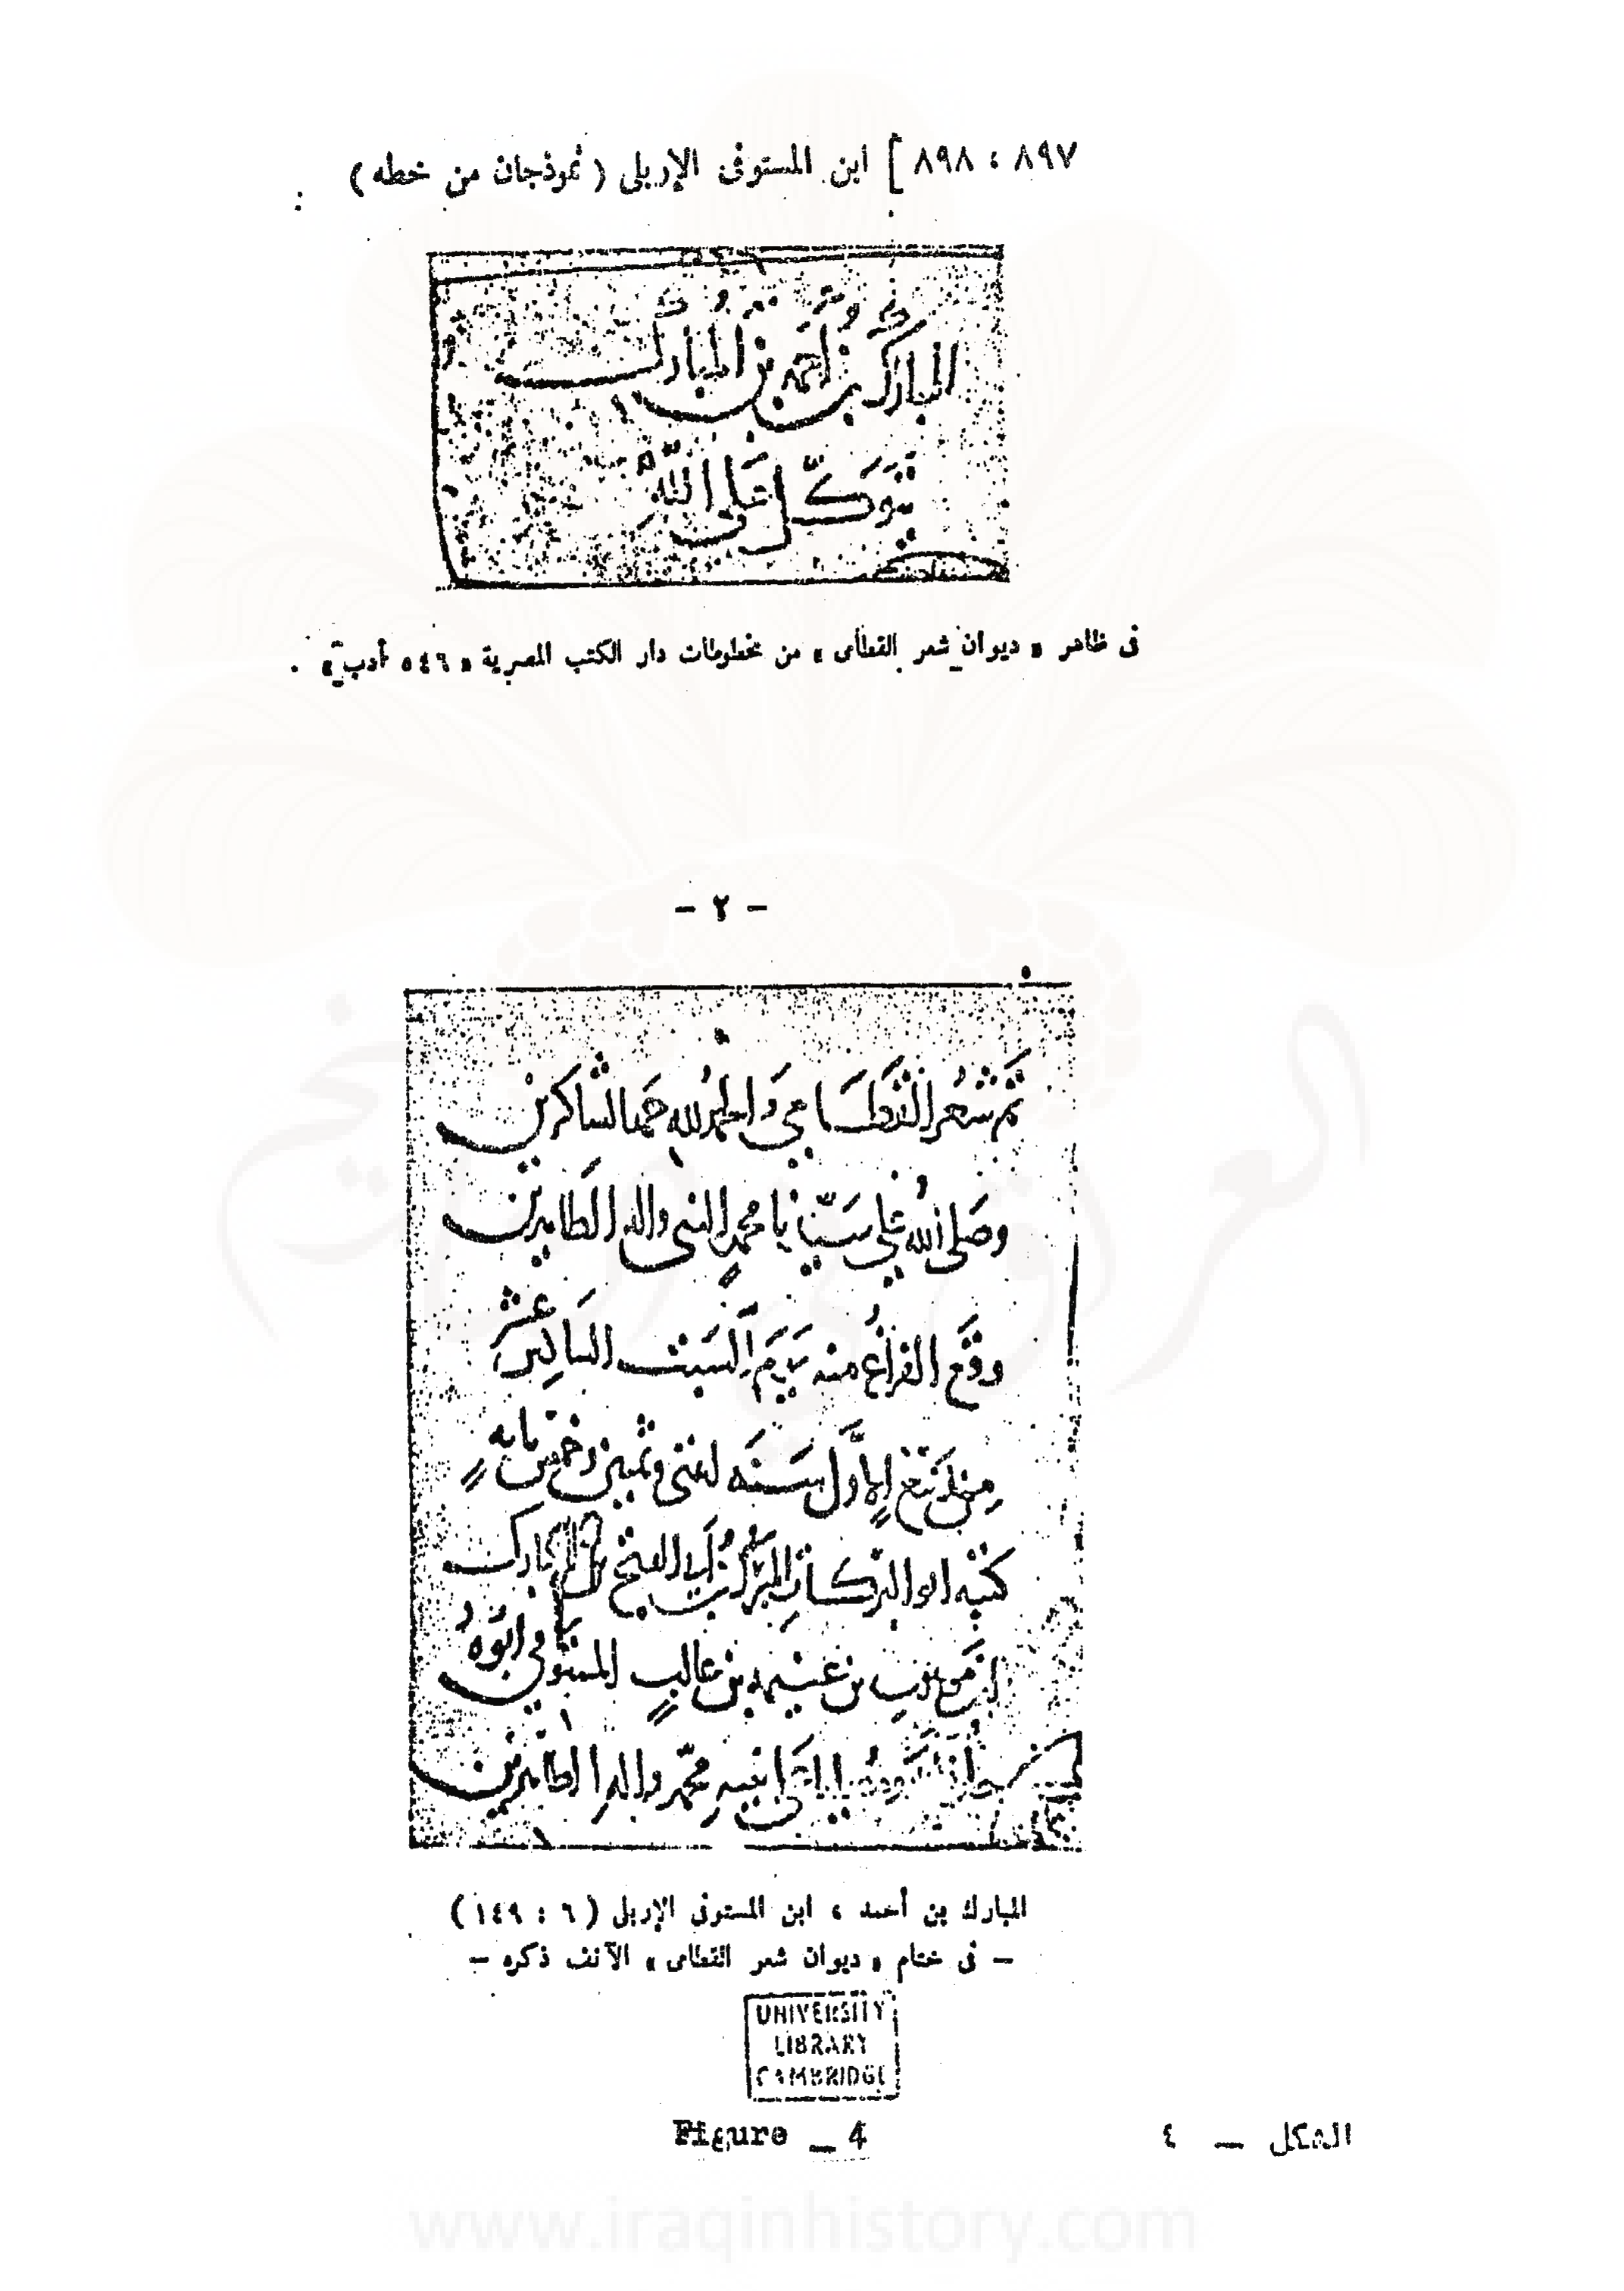 ٨٩٧ ، ٨٩٨ ] ابن المستوفى الإربلى ( نموذجان من خطه ) :
المبارك بن احمد بن المبارك
يتوكل على الله
فى ظاهر « ديوان شعر القطامى » من مخطوطات دار الكتب المصرية « ٥٤٦ أدب » .
— ٢ —
تم شعر القطامي والحمد لله حمد الشاكرين
وصلى الله على سيدنا محمد النبي واله الطاهرين
وقع الفراغ منه يوم السبت السادس عشر
من الاول سنه اثنتى وثمنين وخمس مايه
كتبه ابو البركات المبارك بن ابى الفتح بن المبارك
ابن موهوب بن غنيمه بن غالب المستوفي ابوه
محمد واله الطاهرين
المبارك بن أحمد ، ابن المستوفى الإربلى ( ٦ : ١٤٩ )
— فى ختام « ديوان شعر القطامى » الآنف ذكره —
UNIVERSITY
LIBRARY
CAMBRIDGE
Figure _ 4
الشكل — ٤
العراق في التاريخ
www.iraqinhistory.com